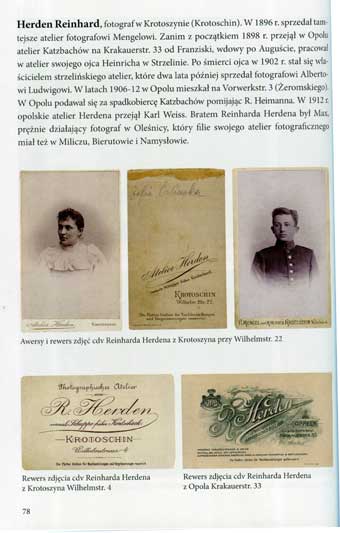 Herden Reinhard, fotograf w Krotoszynie (Krotoschin). W 1896 r. sprzedał tam-
tejsze atelier fotografowi Mengelowi. Zanim z początkiem 1898 r. przejął w Opolu
atelier Katzbachów na Krakauerstr. 33 od Franziski, wdowy po Auguście, pracował
w atelier swojego ojca Heinricha w Strzelinie. Po śmierci ojca w 1902 r. stał się wła-
ścicielem strzelińskiego atelier, które dwa lata później sprzedał fotografowi Alberto-
wi Ludwigowi. W latach 1906-12 w Opolu mieszkał na Vorwerkstr. 3 (Żeromskiego).
W Opolu podawał się za spadkobiercę Katzbachów pomijając R. Heimanna. W 1912 r.
opolskie atelier Herdena przejął Karl Weiss. Bratem Reinharda Herdena był Max,
prężnie działający fotograf w Oleśnicy, który filie swojego atelier fotograficznego
miał też w Miliczu, Bierutowie i Namysłowie.
Atelier Herden
Krotoschin
Wilhelm Str. 22.
Atelier Herden
Awersy i rewers zdjęć cdv Reinharda Herdena z Krotoszyna przy Wilhelmstr. 22
Photographisches Atelier
von
R. Herden
KROTOSCHIN
Wilhelmstrasse 4
R. Herden
OPPELN
Rewers zdjęcia cdv Reinharda Herdena
z Krotoszyna Wilhelmstr. 4
Rewers zdjęcia cdv Reinharda Herdena
z Opola Krakauerstr. 33
78